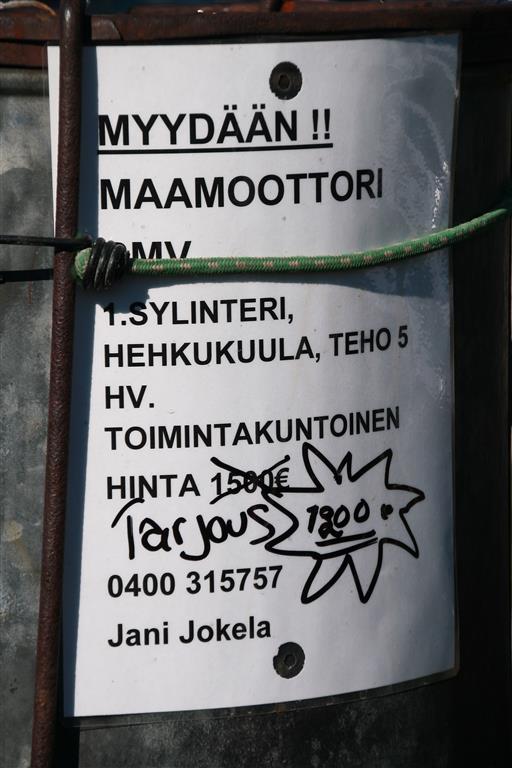 MYYDÄÄN !!
MAAMOOTTORI
1.SYLINTERI,
HEHKUKUULA, TEHO 5
HV.
TOIMINTAKUNTOINEN
HINTA 1500€
Tarjous 1200
0400 315757
Jani Jokela